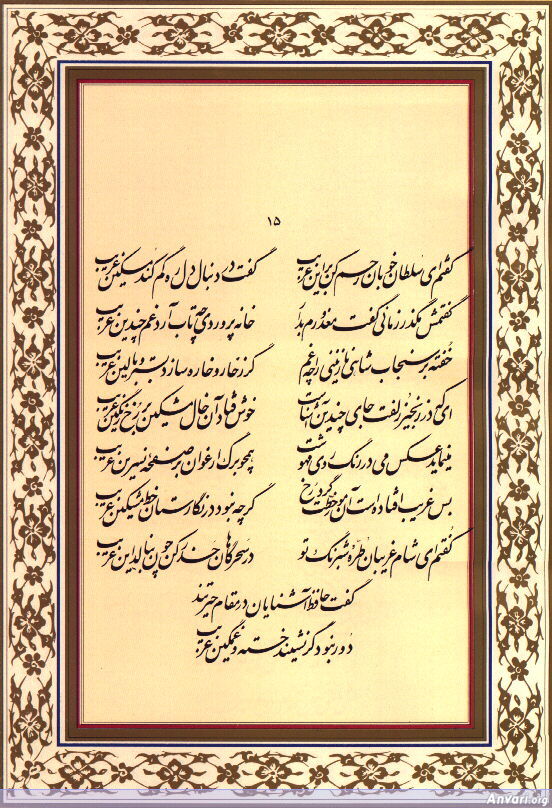 ۱۵
گفتم ای سلطان خوبان رحم کن بر این غریب گفت در دنبال دل ره گم کند مسکین غریب
گفتمش مگذر زمانی گفت معذورم بدار خانه پروردی چه تاب آرد غم چندین غریب
خفته بر سنجاب شاهی نازنینی را چه غم گر ز خار و خاره سازد بستر و بالین غریب
ای که در زنجیر زلفت جای چندین آشناست خوش فتاد آن خال مشکین بر رخ رنگین غریب
مینماید عکس می در رنگ روی مهوشت همچو برگ ارغوان بر صفحه نسرین غریب
بس غریب افتاده است آن مور خط گرد رخت گرچه نبود در نگارستان خط مشکین غریب
گفتم ای شام غریبان طره شبرنگ تو در سحرگاهان حذر کن چون بنالد این غریب
گفت حافظ آشنایان در مقام حیرتند
دور نبود گر نشیند خسته و غمگین غریب
Anvari.org